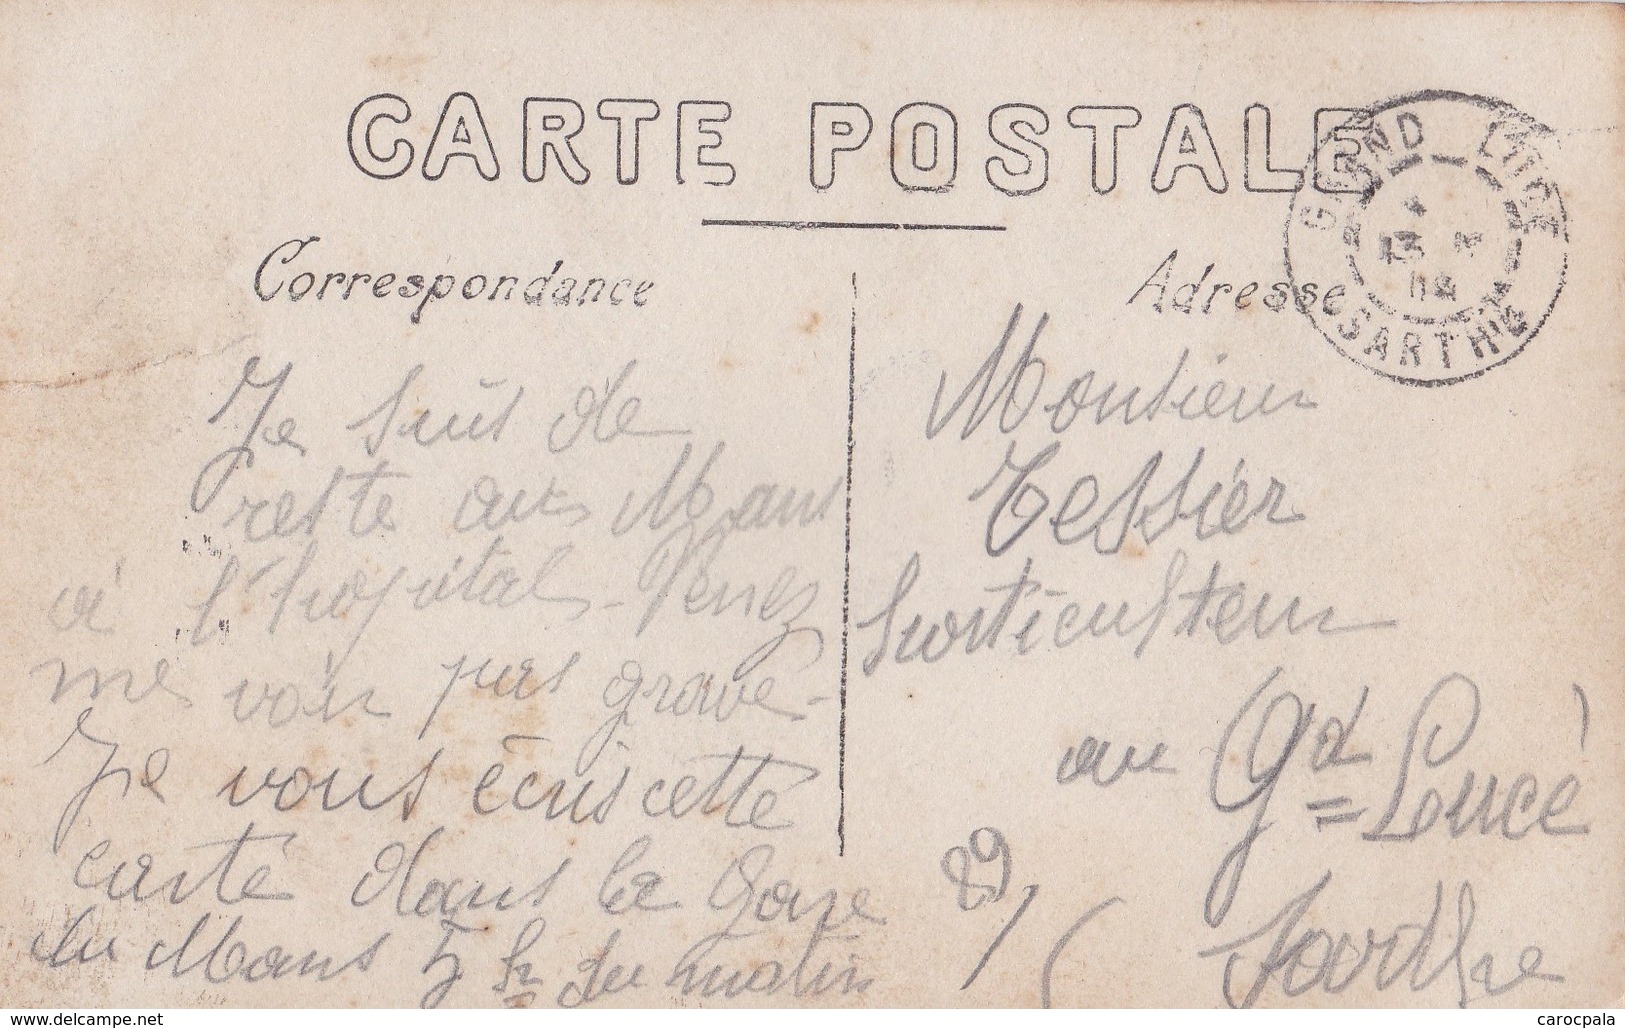 CARTE POSTALE
Correspondance
Je suis de
reste au Mans
à l'hopital - Venez
me voir pas grave -
Je vous écris cette
carte dans la Gare
du Mans 5 h du matin
Adresse
GRAND LUCE
13
SARTHE
Monsieur
Tessier
horticulteur
au Gd Lucé
Sarthe
89
www.delcampe.net
carocpala